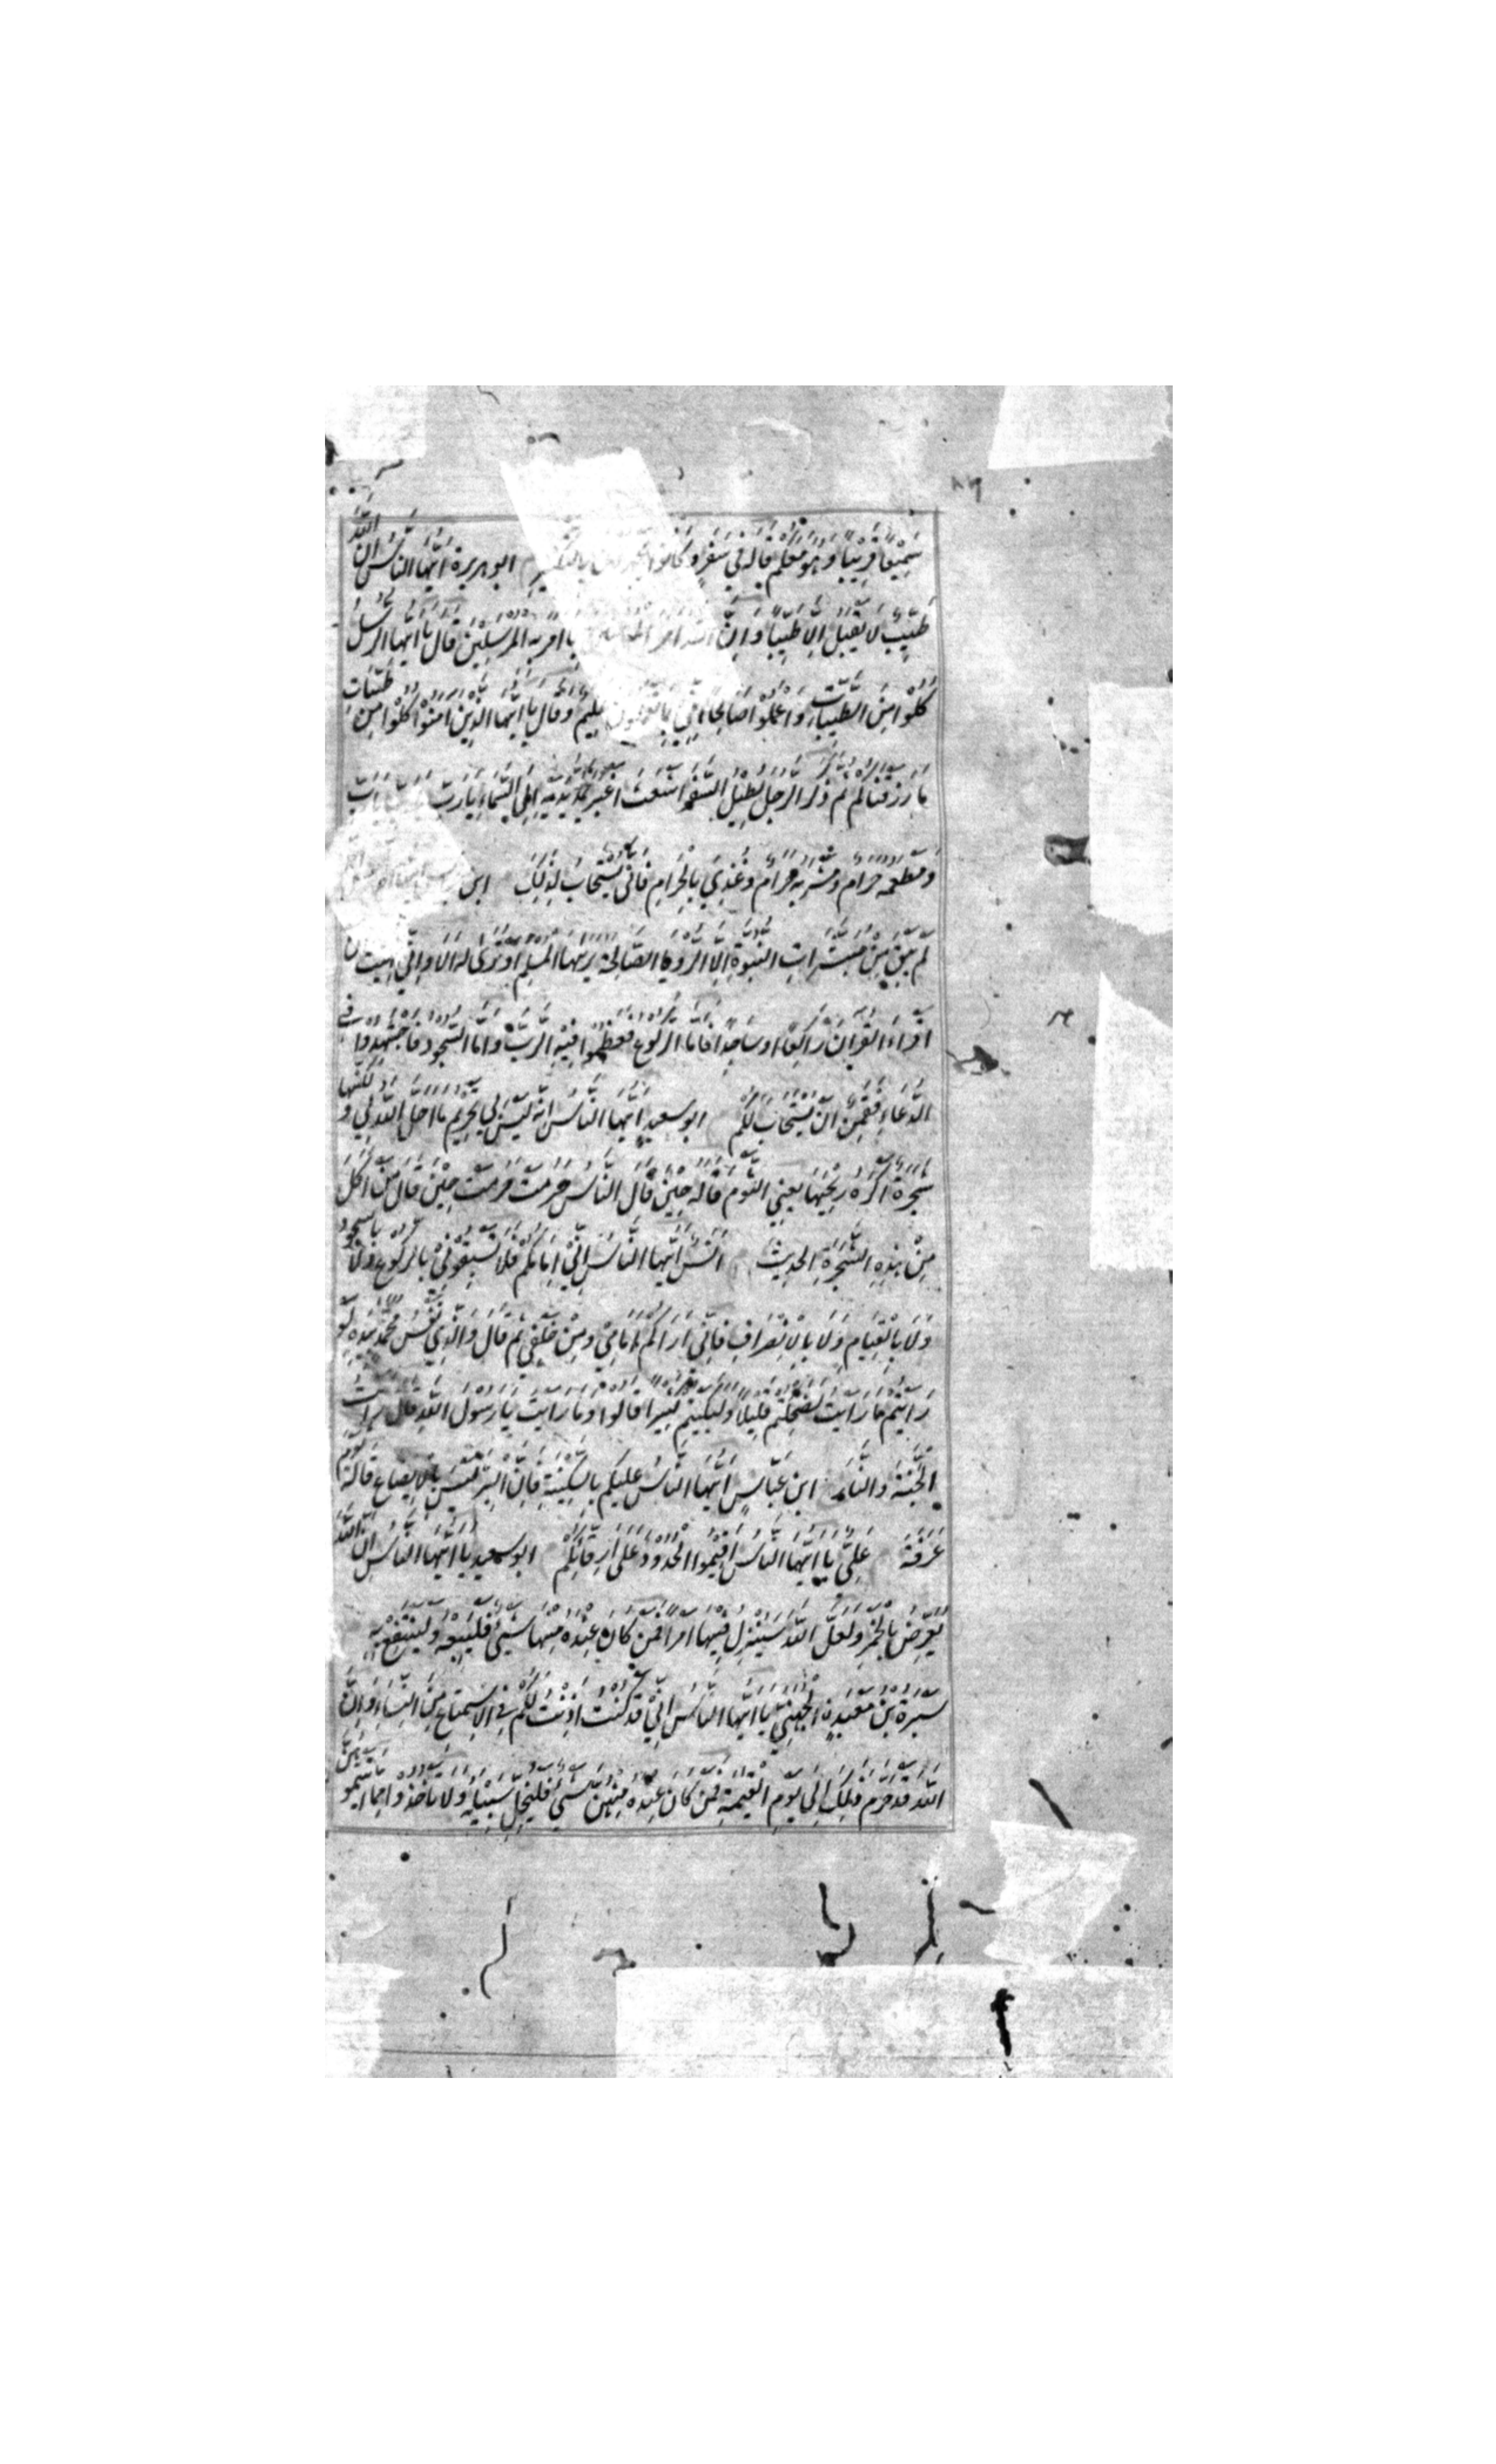 سَمِيْعًا قَرِيْبًا وَهُوَ مَعَكُمْ قاله في سَفَرٍ وَكَانُوا يجهرون بالتكبير ابو هريرة اَيُّهَا النَّاسُ اِنَّ اللّٰهَ
طَيِّبٌ لَا يَقْبَلُ اِلَّا طَيِّبًا وَاِنَّ اللّٰه امر المؤمنين بما اَمَرَ بِهِ الْمُرْسَلِيْنَ قَالَ يَا اَيُّهَا الرُّسُلُ
كُلُوْا مِنَ الطَّيِّبَاتِ وَاعْمَلُوْا صَالِحًا اِنِّيْ بِمَا تَعْمَلُوْنَ عَلِيْمٌ وَقَالَ يَا اَيُّهَا الَّذِيْنَ اٰمَنُوْا كُلُوْا مِنْ طَيِّبَاتِ
مَا رَزَقْنَاكُمْ ثُمَّ ذَكَرَ الرَّجُلَ يُطِيْلُ السَّفَرَ اَشْعَثَ اَغْبَرَ يَمُدُّ يَدَيْهِ اِلَى السَّمَاءِ يَا رَبِّ يَا رَبِّ
وَمَطْعَمُهُ حَرَامٌ وَمَشْرَبُهُ حَرَامٌ وَغُذِيَ بِالْحَرَامِ فَاَنّٰى يُسْتَجَابُ لِذٰلِكَ ابن
لَمْ يَبْقَ مِنْ مُبَشِّرَاتِ النُّبُوَّةِ اِلَّا الرُّؤْيَا الصَّالِحَةُ يَرَاهَا الْمُسْلِمُ اَوْ تُرٰى لَهُ اَلَا وَاِنِّيْ نُهِيْتُ اَنْ
اَقْرَاَ الْقُرْاٰنَ رَاكِعًا اَوْ سَاجِدًا فَاَمَّا الرُّكُوْعُ فَعَظِّمُوْا فِيْهِ الرَّبَّ وَاَمَّا السُّجُوْدُ فَاجْتَهِدُوْا فِي
الدُّعَاءِ فَقَمِنٌ اَنْ يُسْتَجَابَ لَكُمْ ابو سعيد اَيُّهَا النَّاسُ اِنَّهُ لَيْسَ لِيْ تَحْرِيْمُ مَا اَحَلَّ اللّٰهُ لِيْ وَلٰكِنَّهَا
شَجَرَةٌ اَكْرَهُ رِيْحَهَا يَعْنِي الثُّوْمَ قَالَهُ حِيْنَ قَالَ النَّاسُ حُرِّمَتْ حُرِّمَتْ حِيْنَ قَالَ مَنْ اَكَلَ
مِنْ هٰذِهِ الشَّجَرَةِ الْحَدِيْثَ اَنَسٌ اَيُّهَا النَّاسُ اِنِّيْ اِمَامُكُمْ فَلَا تَسْبِقُوْنِيْ بِالرُّكُوْعِ وَلَا بِالسُّجُوْدِ
وَلَا بِالْقِيَامِ وَلَا بِالْاِنْصِرَافِ فَاِنِّيْ اَرَاكُمْ اَمَامِيْ وَمِنْ خَلْفِيْ ثُمَّ قَالَ وَالَّذِيْ نَفْسُ مُحَمَّدٍ بِيَدِهِ لَوْ
رَاَيْتُمْ مَا رَاَيْتُ لَضَحِكْتُمْ قَلِيْلًا وَلَبَكَيْتُمْ كَثِيْرًا قَالُوْا وَمَا رَاَيْتَ يَا رَسُوْلَ اللّٰهِ قَالَ رَاَيْتُ
الْجَنَّةَ وَالنَّارَ ابن عَبَّاسٍ اَيُّهَا النَّاسُ عَلَيْكُمْ بِالسَّكِيْنَةِ فَاِنَّ الْبِرَّ لَيْسَ بِالْاِيْضَاعِ قَالَهُ يَوْمَ
عَرَفَةَ عَلِيٌّ يَا اَيُّهَا النَّاسُ اَقِيْمُوا الْحُدُوْدَ عَلٰى اَرِقَّائِكُمْ ابو سعيد يَا اَيُّهَا النَّاسُ اِنَّ اللّٰهَ
يُعَرِّضُ بِالْخَمْرِ وَلَعَلَّ اللّٰهَ سَيُنْزِلُ فِيْهَا اَمْرًا فَمَنْ كَانَ عِنْدَهُ مِنْهَا شَيْءٌ فَلْيَبِعْهُ وَلْيَنْتَفِعْ بِهِ
سَبْرَةُ بْنُ مَعْبَدٍ الْجُهَنِيُّ يَا اَيُّهَا النَّاسُ اِنِّيْ قَدْ كُنْتُ اَذِنْتُ لَكُمْ فِي الْاِسْتِمْتَاعِ مِنَ النِّسَاءِ وَاِنَّ
اللّٰهَ قَدْ حَرَّمَ ذٰلِكَ اِلٰى يَوْمِ الْقِيٰمَةِ فَمَنْ كَانَ عِنْدَهُ مِنْهُنَّ شَيْءٌ فَلْيُخَلِّ سَبِيْلَهُ وَلَا تَاْخُذُوْا مِمَّا اٰتَيْتُمُوْهُنَّ